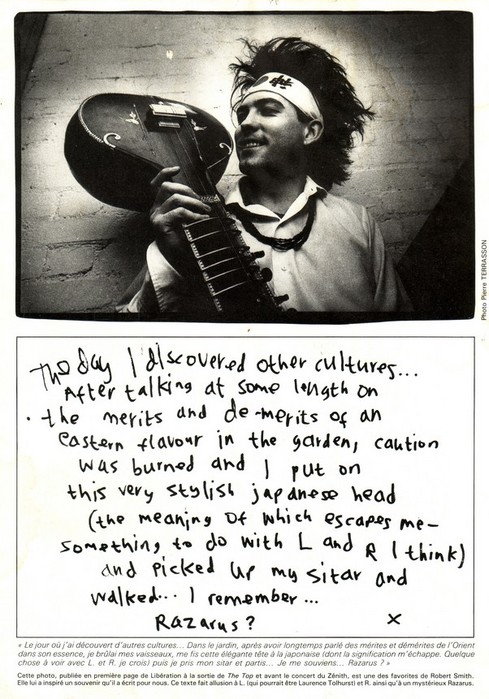 Photo Pierre TERRASSON
The day I discovered other cultures...
After talking at some length on
the merits and de-merits of an
eastern flavour in the garden, caution
was burned and I put on
this very stylish japanese head
(the meaning of which escapes me—
something to do with L and R I think)
and picked up my sitar and
walked... I remember...
Razarus? x
« Le jour où j'ai découvert d'autres cultures... Dans le jardin, après avoir longtemps parlé des mérites et démérites de l'Orient
dans son essence, je brûlai mes vaisseaux, me fis cette élégante tête à la japonaise (dont la signification m'échappe. Quelque
chose à voir avec L. et R. je crois) puis je pris mon sitar et partis... Je me souviens... Razarus ? »
Cette photo, publiée en première page de Libération à la sortie de The Top et avant le concert du Zénith, est une des favorites de Robert Smith.
Elle lui a inspiré un souvenir qu'il a écrit pour nous. Ce texte fait allusion à L. (qui pourrait être Laurence Tolhurst) et R. ainsi qu'à un mystérieux Razarus.